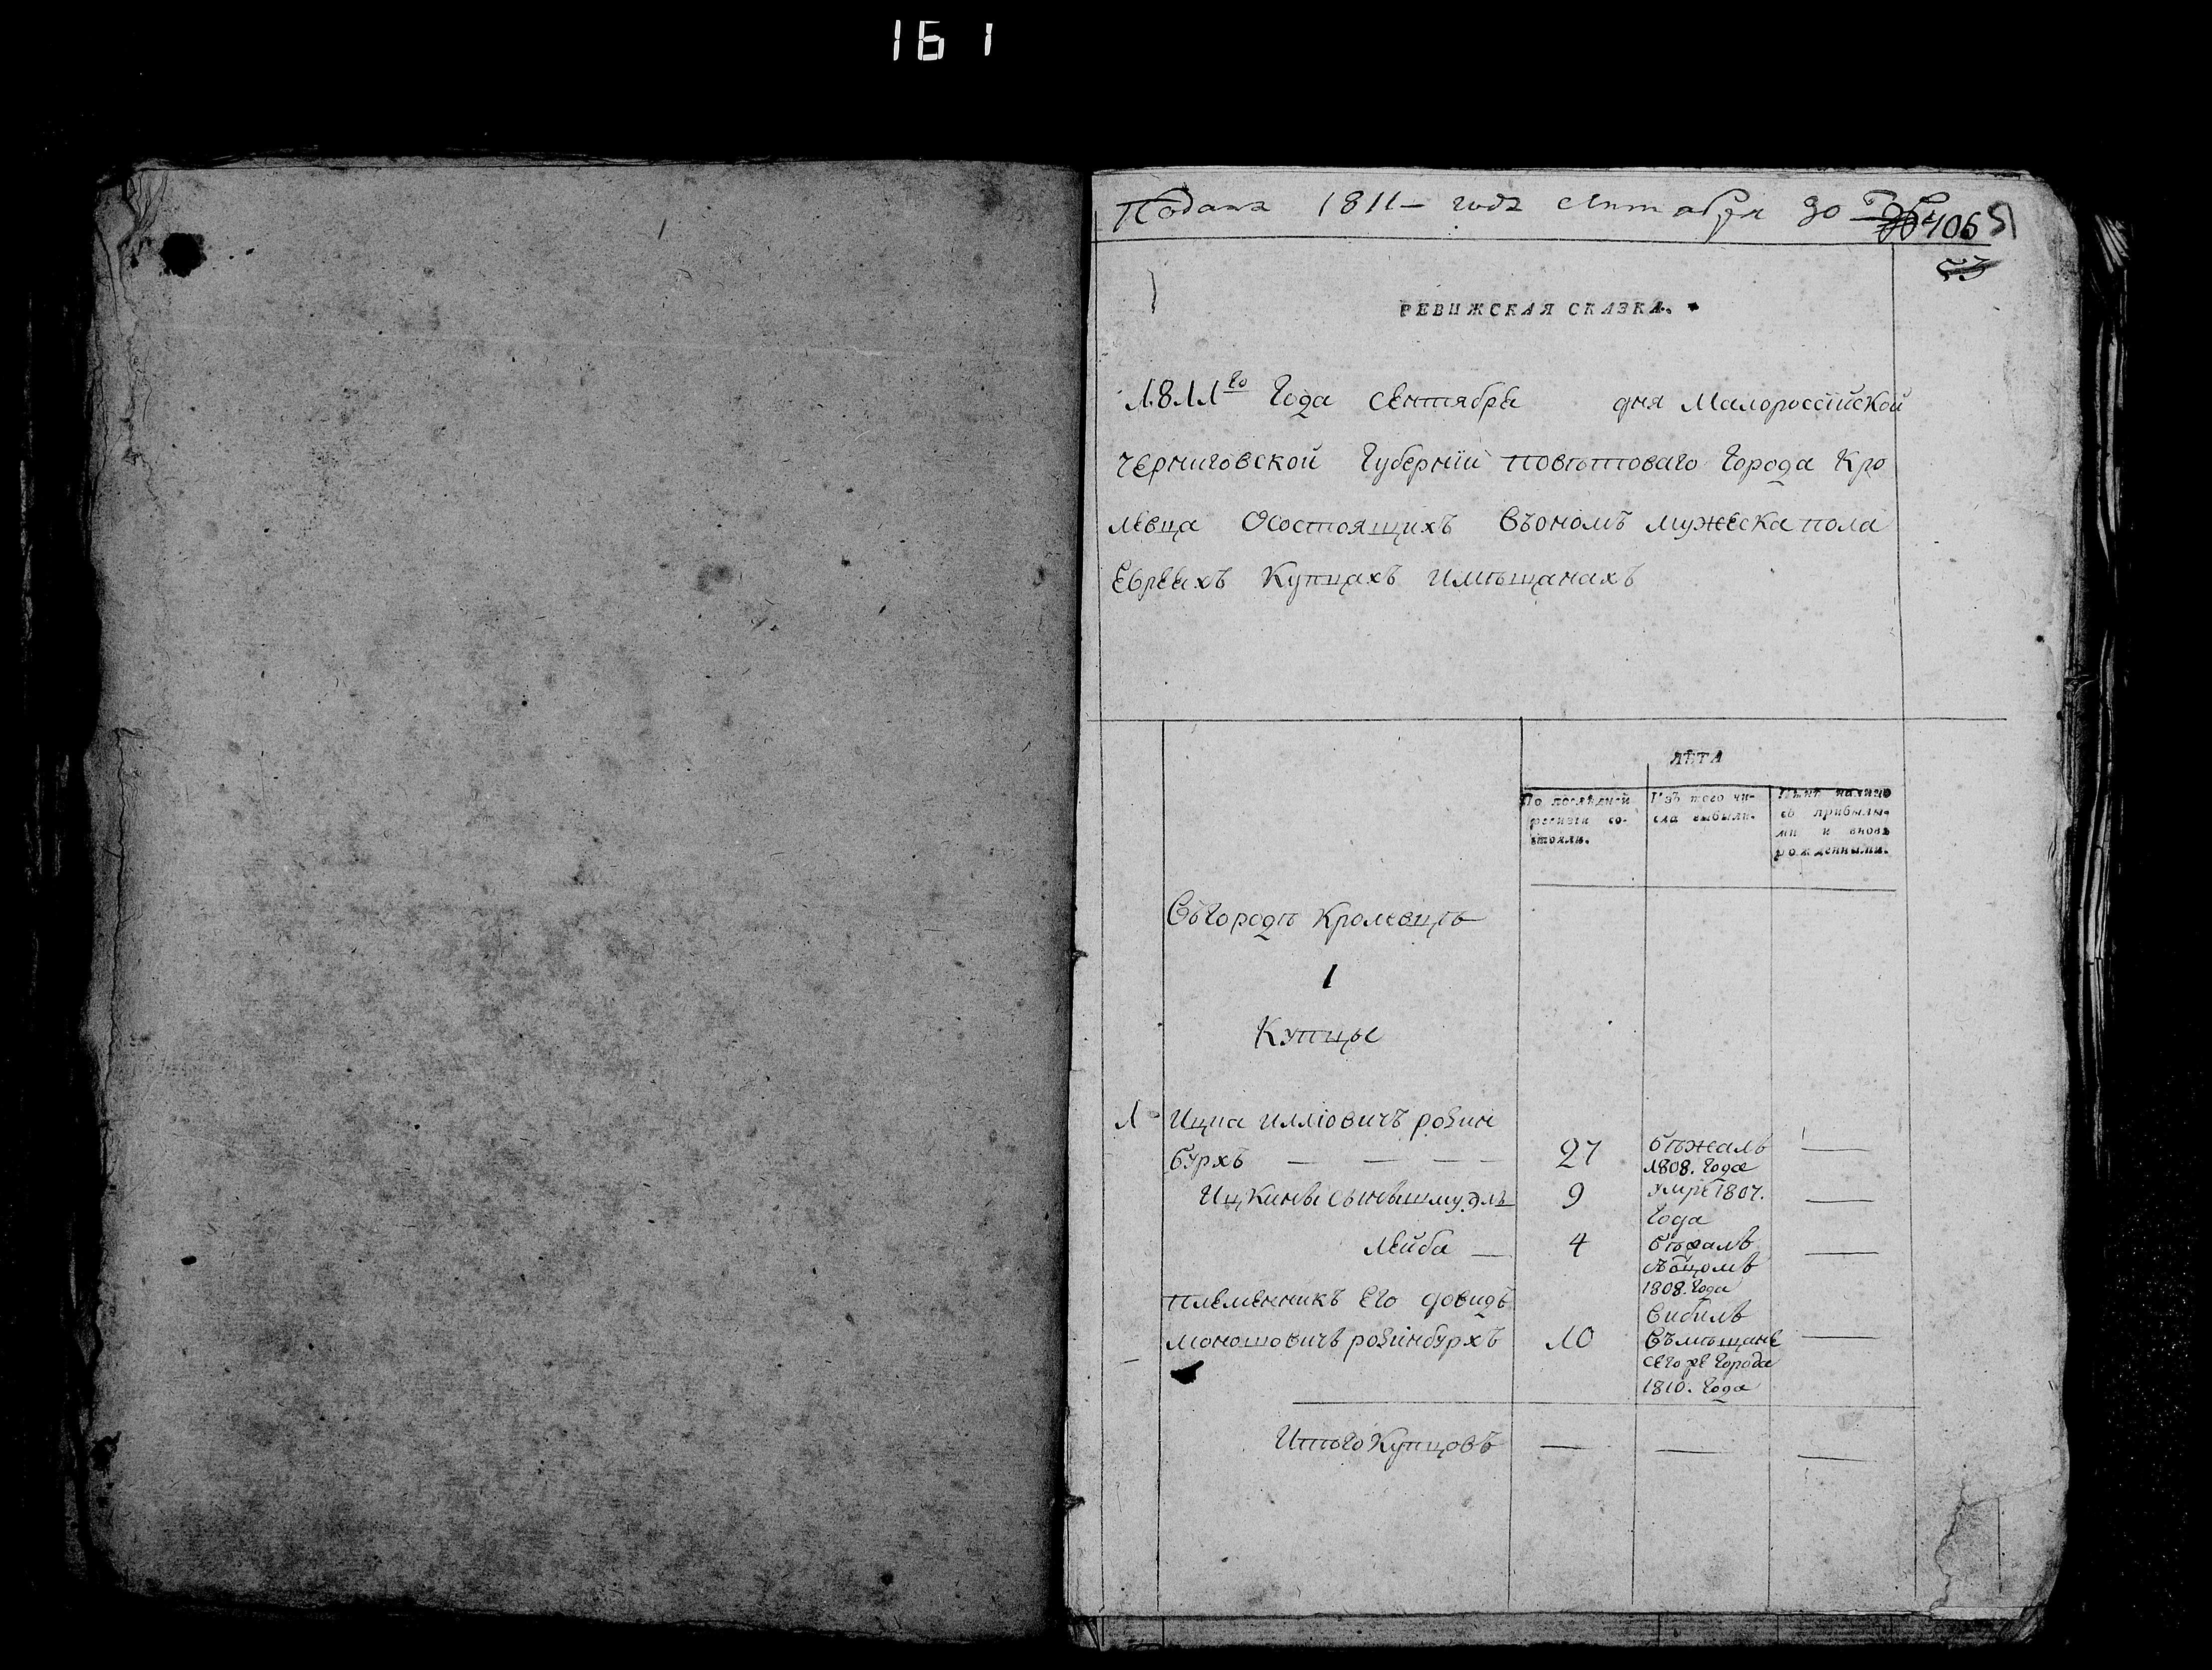 161
Подана 1811- года сентября 30
406 51
53
РЕВИЖСКАЯ СКАЗКА.
1811го Года сентября дня Малороссїйской
черниговской Губернїи повѣтоваго Города Кро
левца Осостоящихъ Въономъ мужеска пола
Евреяхъ Купцахъ имѣщанахъ
ЛѢТА
По послѣдней ревизіи состояли.
Изъ того числа выбыли.
Нынѣ налицо со прибылыми и вновь рожденными.
Въгородѣ Кролевцѣ
1
Купцы
1 Ицка илліовичъ розин
бурхъ — — — — 27 бѣжалъ 1808. Года —
Ицкины сыны шмуэль 9 умре 1807. Года —
Лейба — 4 бѣжалъ сѡтцомъ 1808. Года —
племенникъ Его довидъ
моношовичъ розинбурхъ 10 вибилъ Въмѣщане сегоже Города 1810. Года —
Итого Купцовъ — — —